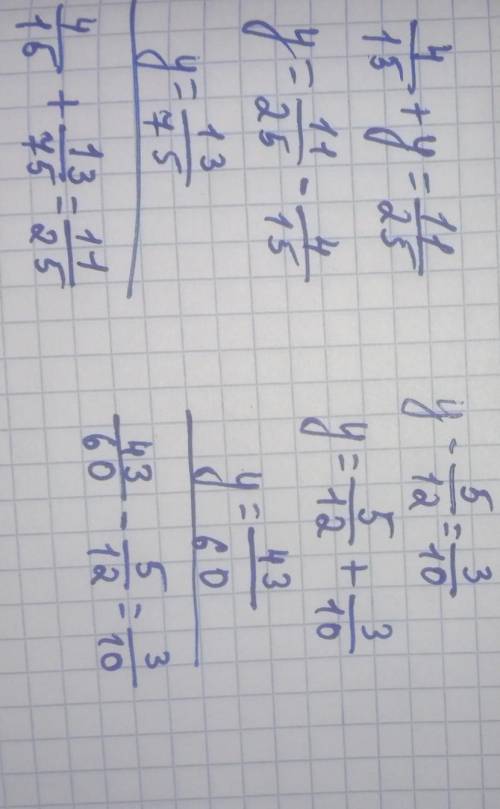 4/15 + y = 11/25
y = 11/25 - 4/15
y = 13/75
4/15 + 13/75 = 11/25
y - 5/12 = 3/10
y = 5/12 + 3/10
y = 43/60
43/60 - 5/12 = 3/10